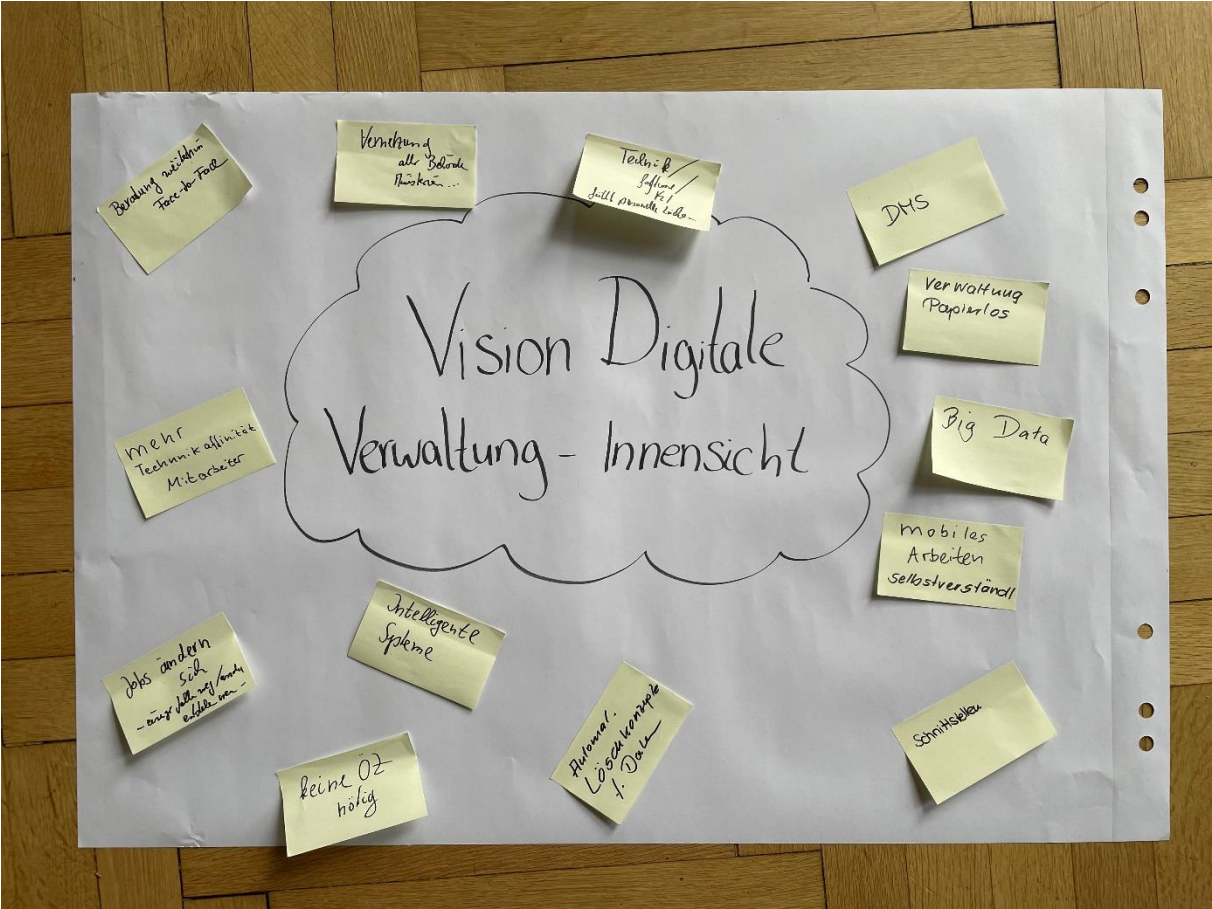 Beratung weiterhin
Face-to-Face
Vernetzung
aller Behörde
Ministerien...
Technik/
Software/
KI/
füllt personelle Lücken
DMS
Verwaltung
Papierlos
Vision Digitale
Verwaltung - Innensicht
Big Data
mehr
Technikaffinität
Mitarbeiter
mobiles
Arbeiten
selbstverständl
Intelligente
Systeme
Jobs ändern
sich
- einige fallen weg/andere
entstehen -
Automat.
Löschkonzepte
f. Daten
Schnittstellen
keine ÖZ
nötig